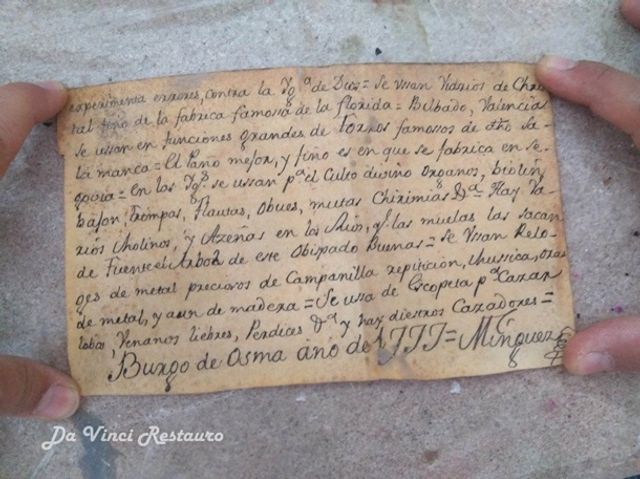 experimenta errores, contra la Ygª de Dios = Se vssan Vidrios de Chris
tal fino de la fabrica famossa de la florida = Bilbado, Valencia
se ussan en funciones grandes de toros famossos de dho Sa-
lamanca = El Paño mejor, y fino es en que se fabrica en Se-
govia = en las Ygs. se ussan pª el Culto divino organos, biolin,
bajon, trompas, Flautas, Obues, mutas Chirimias &ª = Hay Va-
rios Molinos, y Azeñas en los Rios, q. las muelas las sacan
de Fuentelarbol de este Obispado Buenas = Se Vssan Relo-
ges de metal preciosos de Campanilla repiticion, Mussica,
de metal, y aun de madera = Se ussa de Escopeta pª Cazar
lobos, Venanos liebres, Perdices &ª y hay diestros Cazadores =
Burgo de Osma año de 1777 = Minguez
Da Vinci Restauro